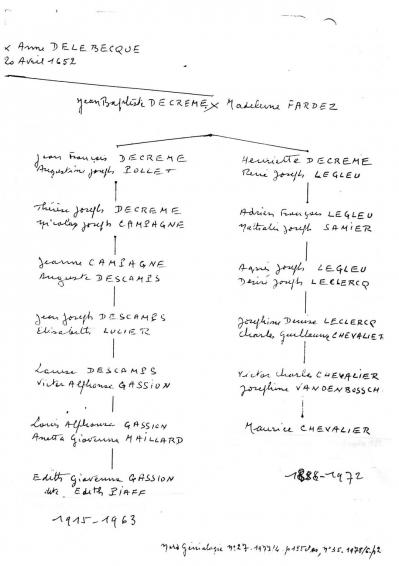 x Anne DELEBECQUE
20 Avril 1652
Jean Baptiste DECREME x Madeleine FARDEZ
Jean François DECREME
Augustine Joseph BOLLET
Thérèse Joseph DECREME
Nicolas Joseph CAMPAGNE
Jeanne CAMPAGNE
Auguste DESCAMPS
Jean Joseph DESCAMPS
Elisabeth LUCIER
Louise DESCAMPS
Victor Alphonse GASSION
Louis Alphonse GASSION
Anetta Giovanna MAILLARD
Edith Giovanna GASSION
dite Edith PIAFF
1915-1963
Henriette DECREME
René Joseph LEGLEU
Adrien François LEGLEU
Mathalie Joseph SAMIER
Agnès Joseph LEGLEU
Désiré Joseph LECLERCQ
Josephine Denise LECLERCQ
Charles Guillaume CHEVALIER
Victor Charles CHEVALIER
Josephine VANDENBOSSCH
Maurice CHEVALIER
1888-1972
Nord Généalogie n°27. 1977/4 n°35. 1978/6